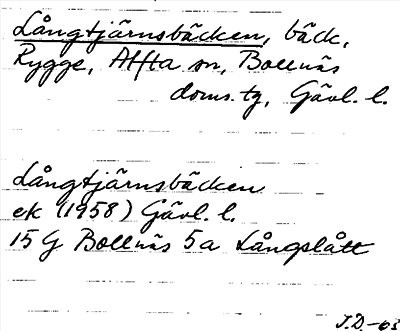 Långtjärnsbäcken, bäck,
Rygge, Alfta sn, Bollnäs
doms. tg, Gävl. l.
Långtjärnsbäcken
ek (1958) Gävl. l.
15 G Bollnäs 5a Långslått
J.D.-63